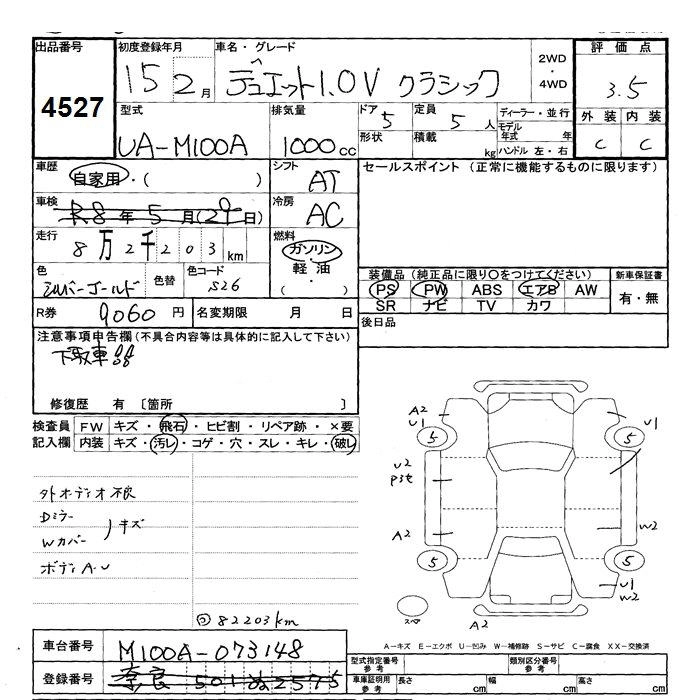 出品番号 初度登録年月 車名・グレード 2WD・4WD 評価点
4527 15 2月 デュエット1.0V クラシック 3.5
型式 排気量 ドア 5 定員 5人 ディーラー・並行 外装 内装
UA-M100A 1000cc 形状 積載 kg モデル年式 年 ハンドル 左・右 C C
車歴 自家用・( ) シフト AT セールスポイント (正常に機能するものに限ります)
車検 R8年5月(29日) 冷房 AC
走行 8万2千203km 燃料 ガソリン・軽油・( )
色 シルバーゴールド 色替 色コード S26 装備品 (純正品に限り○をつけてください) 新車保証書
PS PW ABS エアB AW 有・無
SR ナビ TV カワ
R券 9060円 名変期限 月 日 後日品
注意事項申告欄(不具合内容等は具体的に記入して下さい)
下取車
修復歴 有 〔箇所 〕
検査員 FW キズ・飛石・ヒビ割・リペア跡・×要
記入欄 内装 キズ・汚レ・コゲ・穴・スレ・キレ・破レ
A2 U1 5 5 U1
U2
A2 W2
5 5 U1 W2
A2
外オーディオ不良
Dミラー
Wカバー キズ
ボディA.U
82203km
A-キズ E-エクボ U-凹み W-補修跡 S-サビ C-腐食 XX-交換済
車台番号 M100A-073148 型式指定番号 参考 類別区分番号 参考
登録番号 奈良 501 2575 車庫証明用 参考 長さ cm 幅 cm 高さ cm